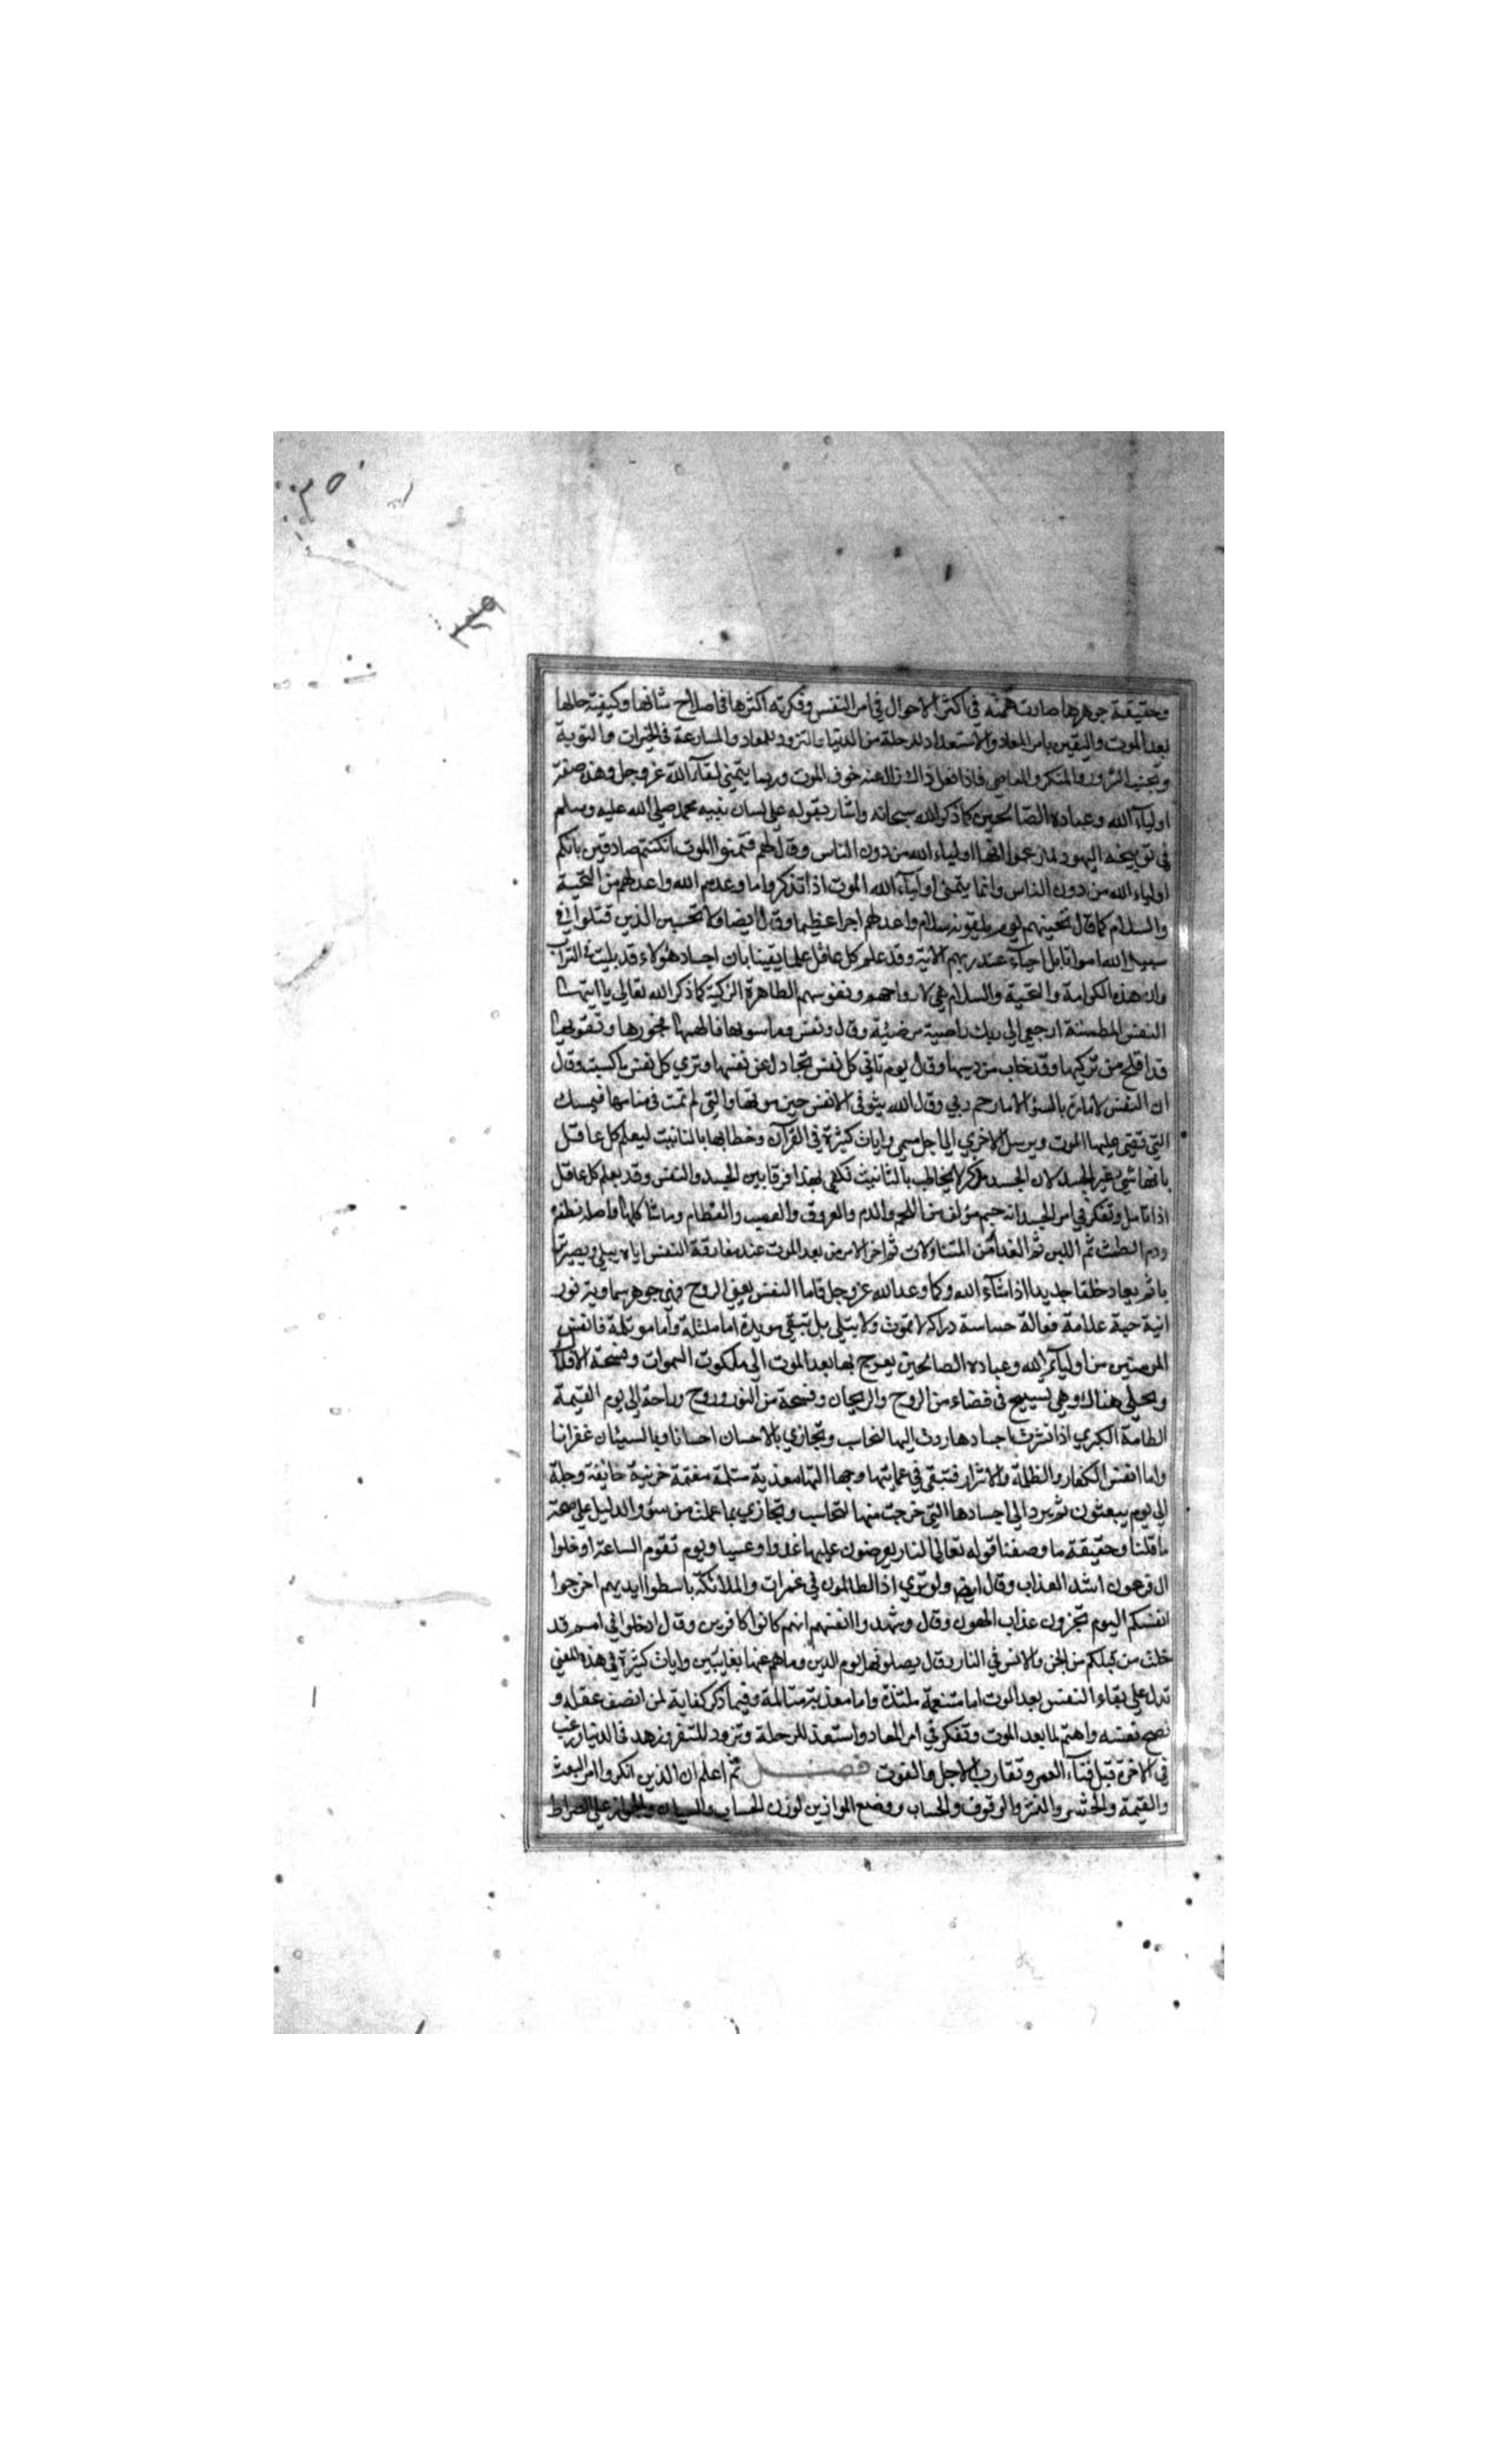 وحقيقة جوهرها صارت همته في اكثر الاحوال في امر النفس وفكرته اكثرها في اصلاح شانها وكيفية حالها
بعد الموت واليقين بامر المعاد والاستعداد للرحلة من الدنيا والتزود للمعاد والمسارعة في الخيرات والتوبة
وتجنب الشرور والمنكر والمعاصي فاذا فعل ذاك زال عنه خوف الموت وربما يتمنى لقاء الله عز وجل وهذه صفة
اولياء الله وعباده الصالحين كما ذكر الله سبحانه واشار بقوله على لسان نبيه محمد صلى الله عليه وسلم
في توبيخه اليهود لما زعموا انها اولياء الله من دون الناس وقال لهم فتمنوا الموت ان كنتم صادقين بانكم
اولياء الله من دون الناس وانما يتمنى اولياء الله الموت اذا تذكروا ما وعدهم الله واعد لهم من التحية
والسلام كما قال تحيتهم يوم يلقونه سلام واعد لهم اجرا عظيما وقال ايضا ولا تحسبن الذين قتلوا في
سبيل الله امواتا بل احياء عند ربهم الاية وقد علم كل عاقل علما يقينا بان اجساد هؤلاء قد بليت في التراب
وان هذه الكرامة والتحية والسلام هي لارواحهم ونفوسهم الطاهرة الزكية كما ذكر الله تعالى يا ايتها
النفس المطمئنة ارجعي الى ربك راضية مرضية وقال ونفس وما سويها فالهمها فجورها وتقويها
قد افلح من زكيها وقد خاب من دسيها وقال يوم تاتي كل نفس تجادل عن نفسها وترى كل نفس ما كسبت وقال
ان النفس لامارة بالسوء الا ما رحم ربي وقال الله يتوفى الانفس حين موتها والتي لم تمت في منامها فيمسك
التي قضى عليها الموت ويرسل الاخرى الى اجل مسمى وايات كثيرة في القران وخطابها بالتانيث ليعلم كل عاقل
بانها شيء غير الجسد لان الجسد مذكر لا يخاطب بالتانيث فكفى بهذا فرقا بين الجسد والنفس وقد يعلم كل عاقل
اذا تامل وتفكر في امر الجسد انه جسم مؤلف من اللحم والدم والعروق والعصب والعظام وما شاكلها واصله نطفة
ودم الطمث ثم اللبن ثم الغذا من المتناولات ثم اخر الامر من بعد الموت عند مفارقة النفس اياه يبلى ويصير ترا
با ثم يعاد خلقا جديدا اذا شاء الله وكما وعد الله عز وجل فاما النفس يعني الروح فهي جوهر سماوية نور
انية حية علامة فعالة حساسة دراكة لا تموت ولا تبلى بل تبقى مويدة اما ملتذة واما موتلمة فانفس
المومنين من اولياء الله وعباده الصالحين يعرج بها بعد الموت الى ملكوت السموات وفسحة الافلاك
ويخلى هناك وهي تسبح في فضاء من الروح والريحان وفسحة من النور وروح وراحة الى يوم القيمة
الطامة الكبرى اذا نشرت اجسادها ردت اليها لتحاسب وتجازي بالاحسان احسانا وبالسيئات غفرانا
واما انفس الكفار والظلمة والاشرار فتبقى في عمايتها وجهالتها معذبة متلمة مغتمة حزينة خايفة وجلة
الى يوم يبعثون ثم يرد الى اجسادها التي خرجت منها لتحاسب وتجازي بما عملت من سؤ والدليل على صحة
ما قلنا وحقيقة ما وصفنا قوله تعالى النار يعرضون عليها غدوا وعشيا ويوم تقوم الساعة ادخلوا
ال فرعون اشد العذاب وقال ايضا ولو ترى اذ الظالمون في غمرات والملائكة باسطوا ايديهم اخرجوا
انفسكم اليوم تجزون عذاب الهون وقال وشهدوا انفسهم انهم كانوا كافرين وقال ادخلوا في امم قد
خلت من قبلكم من الجن والانس في النار وقال يصلونها يوم الدين وما هم عنها بغايبين وايات كثيرة في هذه المعنى
تدل على بقاء النفس بعد الموت اما متنعمة ملتذة واما معذبة متالمة وفيما ذكر كفاية لمن انصف عقله و
نصح نفسه واهتم لما بعد الموت وتفكر في امر المعاد واستعد للرحلة وتزود للسفر وزهد في الدنيا ورغب
في الاخرة قبل فناء العمر وتقارب الاجل والفوت فصل ثم اعلم ان الذين انكروا امر البعث
والقيمة والحشر والنشر والوقوف والحساب ووضع الموازين لوزن الحساب والجواز على الصراط